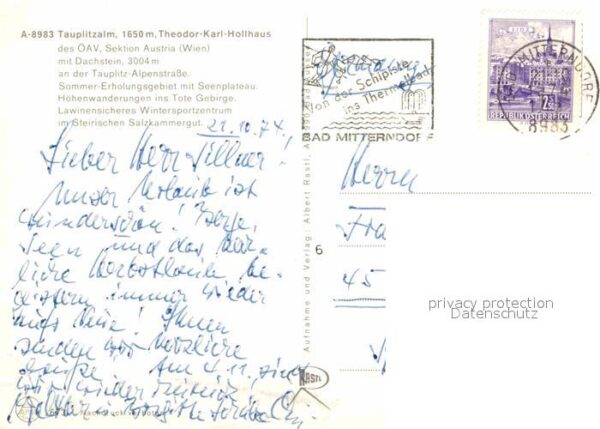 A-8983 Tauplitzalm, 1650 m, Theodor-Karl-Hollhaus
des ÖAV, Sektion Austria (Wien)
mit Dachstein, 3004 m
an der Tauplitz-Alpenstraße.
Sommer-Erholungsgebiet mit Seenplateau.
Höhenwanderungen ins Tote Gebirge.
Lawinensicheres Wintersportzentrum
im Steirischen Salzkammergut.
21.10.74
Lieber Herr
Unser Urlaub ist
wunderschön! Berge,
Seen und das
liche Herbstlaub be-
geistern immer wieder
aufs Neue! Ihnen
senden wir herzliche
Grüße! Am 4.11. sind
wir wieder
Aufnahme und Verlag: Albert Rastl,
6
Rastl
Germany
Von der Schipiste
ins Thermalbad
BAD MITTERNDORF
BAD MITTERNDORF
8983
2.50
REPUBLIK ÖSTERREICH
Herrn
45
privacy protection
Datenschutz